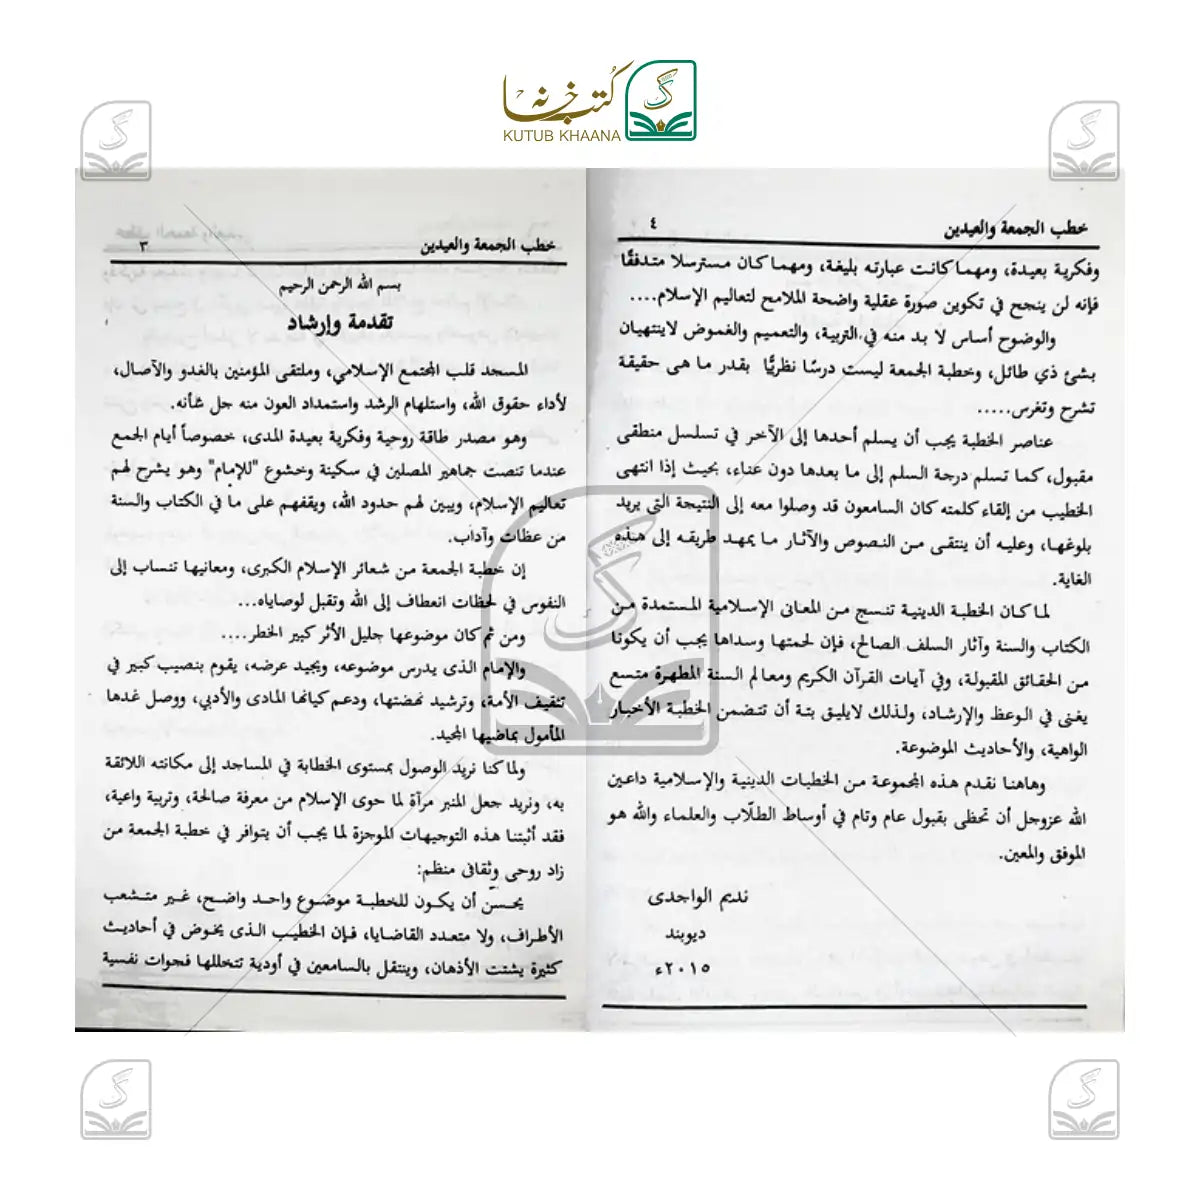 كتب خانہ
KUTUB KHAANA
خطب الجمعة والعيدين
٣
بسم الله الرحمن الرحيم
تقدمة وإرشاد
المسجد قلب المجتمع الإسلامي، وملتقى المؤمنين بالغدو والآصال،
لأداء حقوق الله، واستلهام الرشد واستمداد العون منه جل شأنه.
وهو مصدر طاقة روحية وفكرية بعيدة المدى، خصوصاً أيام الجمع
عندما تنصت جماهير المصلين في سكينة وخشوع "للإمام" وهو يشرح لهم
تعاليم الإسلام، ويبين لهم حدود الله، ويقفهم على ما في الكتاب والسنة
من عظات وآداب.
إن خطبة الجمعة من شعائر الإسلام الكبرى، ومعانيها تنساب إلى
النفوس في لحظات انعطاف إلى الله وتقبل لوصاياه...
ومن ثم كان موضوعها جليل الأثر كبير الخطر....
والإمام الذى يدرس موضوعه، ويجيد عرضه، يقوم بنصيب كبير في
تثقيف الأمة، وترشيد نهضتها، ودعم كيانها المادى والأدبي، ووصل غدها
المأمول بماضيها المجيد.
ولما كنا نريد الوصول بمستوى الخطابة في المساجد إلى مكانته اللائقة
به، ونريد جعل المنبر مرآة لما حوى الإسلام من معرفة صالحة، وتربية واعية،
فقد أثبتنا هذه التوجيهات الموجزة لما يجب أن يتوافر في خطبة الجمعة من
زاد روحى وثقافى منظم:
يحسن أن يكون للخطبة موضوع واحد واضح، غير متشعب
الأطراف، ولا متعدد القاضايا، فإن الخطيب الذى يخوض في أحاديث
كثيرة يشتت الأذهان، وينتقل بالسامعين في أودية تتخللها فجوات نفسية
خطب الجمعة والعيدين
٤
وفكرية بعيدة، ومهما كانت عبارته بليغة، ومهما كان مسترسلا متدفقًا
فإنه لن ينجح في تكوين صورة عقلية واضحة الملامح لتعاليم الإسلام....
والوضوح أساس لا بد منه في التربية، والتعميم والغموض لاينتهيان
بشئ ذي طائل، وخطبة الجمعة ليست درسًا نظريًّا بقدر ما هى حقيقة
تشرح وتغرس.....
عناصر الخطبة يجب أن يسلم أحدها إلى الآخر في تسلسل منطقى
مقبول، كما تسلم درجة السلم إلى ما بعدها دون عناء، بحيث إذا انتهى
الخطيب من إلقاء كلمته كان السامعون قد وصلوا معه إلى النتيجة التي يريد
بلوغها، وعليه أن ينتقى من النصوص والآثار ما يمهد طريقه إلى هذه
الغاية.
لما كان الخطبة الدينية تنسج من المعانى الإسلامية المستمدة من
الكتاب والسنة وآثار السلف الصالح، فإن لحمتها وسداها يجب أن يكونا
من الحقائق المقبولة، وفي آيات القرآن الكريم ومعالم السنة المطهرة متسع
يغنى في الوعظ والإرشاد، ولذلك لايليق بتة أن تتضمن الخطبة الأخبار
الواهية، والأحاديث الموضوعة.
وهاهنا نقدم هذه المجموعة من الخطبات الدينية والإسلامية داعين
الله عزوجل أن تحظى بقبول عام وتام في أوساط الطلّاب والعلماء والله هو
الموفق والمعين.
نديم الواجدى
ديوبند
٢٠١٥ء